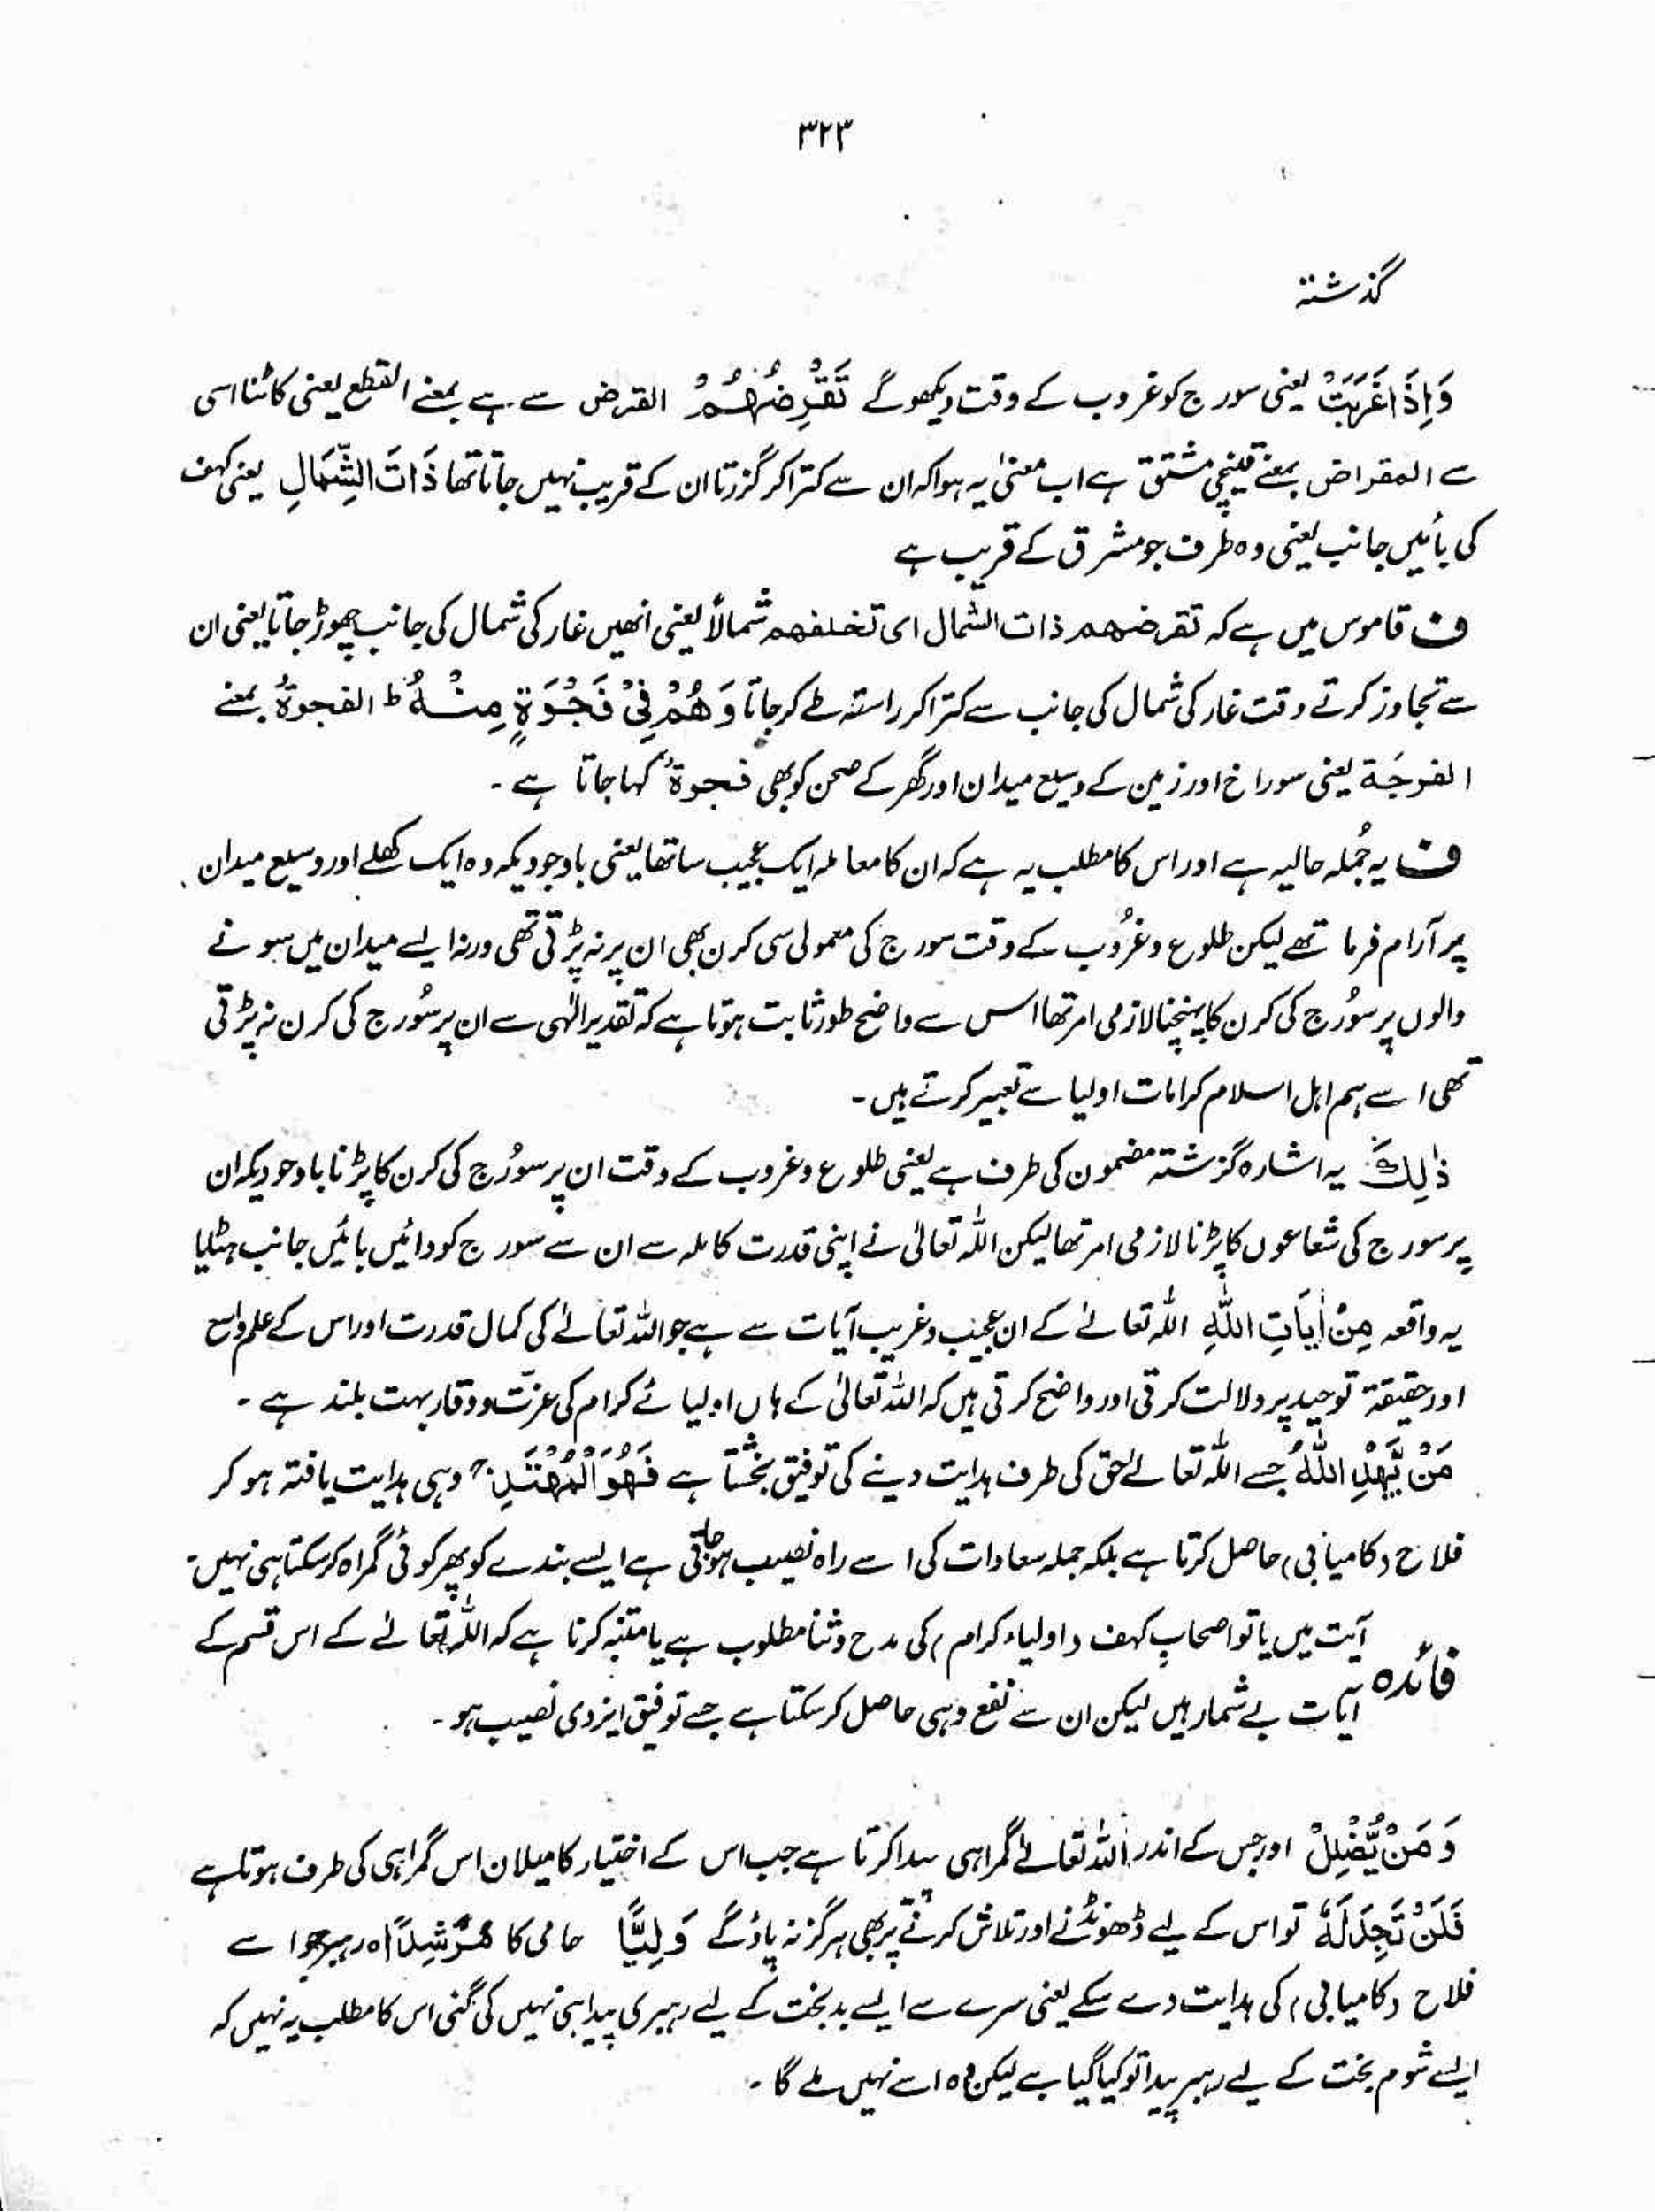 ۳۲۳
گذشتہ
وَاِذَا غَرَبَتْ یعنی سورج کو غروب کے وقت دیکھو گے تَقْرِضُهُمْ القرض سے ہے بمعنے القطع یعنی کاٹنا اسی
سے المقراض بمعنے قینچی مشتق ہے اب معنیٰ یہ ہوا کہ ان سے کترا کر گزرتا ان کے قریب نہیں جاتا تھا ذَاتَ الشِّمَالِ یعنی کہف
کی بائیں جانب یعنی وہ طرف جو مشرق کے قریب ہے
ف قاموس میں ہے کہ تقرضھم ذات الشمال ای تخلفھم شمالاً یعنی انھیں غار کی شمال کی جانب چھوڑ جاتا یعنی ان
سے تجاوز کرتے وقت غار کی شمال کی جانب سے کترا کر راستہ طے کر جاتا وَهُمْ فِیْ فَجْوَةٍ مِنْهُ ط الفجوۃُ بمعنے
الفرجَة یعنی سوراخ اور زمین کے وسیع میدان اور گھر کے صحن کو بھی فجوةٌ کہا جاتا ہے ۔
ف یہ جُملہ حالیہ ہے اور اس کا مطلب یہ ہے کہ ان کا معاملہ ایک عجیب سا تھا یعنی باوجودیکہ وہ ایک کھلے اور وسیع میدان
پر آرام فرما تھے لیکن طلوع و غرُوب کے وقت سورج کی معمولی سی کرن بھی ان پر نہ پڑتی تھی ورنہ ایسے میدان میں سونے
والوں پر سُورج کی کرن کا پہنچنا لازمی امر تھا اس سے واضح طور ثابت ہوتا ہے کہ تقدیر الٰہی سے ان پر سُورج کی کرن نہ پڑتی
تھی اسے ہم اہل اسلام کرامات اولیا سے تعبیر کرتے ہیں ۔
ذٰلِكَ یہ اشارہ گزشتہ مضمون کی طرف ہے یعنی طلوع و غروب کے وقت ان پر سورُج کی کرن کا پڑنا باوجودیکہ ان
پر سورج کی شعاعوں کا پڑنا لازمی امر تھا لیکن اللہ تعالیٰ نے اپنی قدرت کاملہ سے ان سے سورج کو دائیں بائیں جانب ہٹایا
یہ واقعہ مِنْ اٰیَاتِ اللّٰہِ اللہ تعالےٰ کے ان عجیب و غریب آیات سے ہے جو اللہ تعالےٰ کی کمال قدرت اور اس کے علم واسع
اور حقیقۃ توحید پر دلالت کرتی اور واضح کرتی ہیں کہ اللہ تعالیٰ کے ہاں اولیائے کرام کی عزّت و وقار بہت بلند ہے ۔
مَنْ یَّهْدِ اللّٰهُ جسے اللہ تعالےٰ حق کی طرف ہدایت دینے کی توفیق بخشتا ہے فَهُوَ الْمُهْتَدِ ج وہی ہدایت یافتہ ہو کر
فلاح (کامیابی) حاصل کرتا ہے بلکہ جملہ سعادات کی اسے راہ نصیب ہو جاتی ہے ایسے بندے کو پھر کوئی گمراہ کر سکتا ہی نہیں ۔
آیت میں یا تو اصحابِ کہف (اولیاء کرام) کی مدح و ثنا مطلوب ہے یا متنبہ کرنا ہے کہ اللہ تعالےٰ کے اس قسم کے
فائدہ
آیات بے شمار ہیں لیکن ان سے نفع وہی حاصل کر سکتا ہے جسے توفیق ایزدی نصیب ہو ۔
وَ مَنْ یُّضْلِلْ اور جس کے اندر اللہ تعالےٰ گمراہی پیدا کرتا ہے جب اس کے اختیار کا میلان اس گمراہی کی طرف ہوتا ہے
فَلَنْ تَجِدَ لَهٗ تو اس کے لیے ڈھونڈنے اور تلاش کرنے پر بھی ہرگز نہ پاؤ گے وَلِیًّا حامی کا مُرْشِدًا اور رہبر جو اسے
فلاح (کامیابی) کی ہدایت دے سکے یعنی سرے سے ایسے بدبخت کے لیے رہبری پیدا ہی نہیں کی گئی اس کا مطلب یہ نہیں کہ
ایسے شوم بخت کے لیے رہبر پیدا تو کیا گیا ہے لیکن وہ اسے نہیں ملے گا ۔